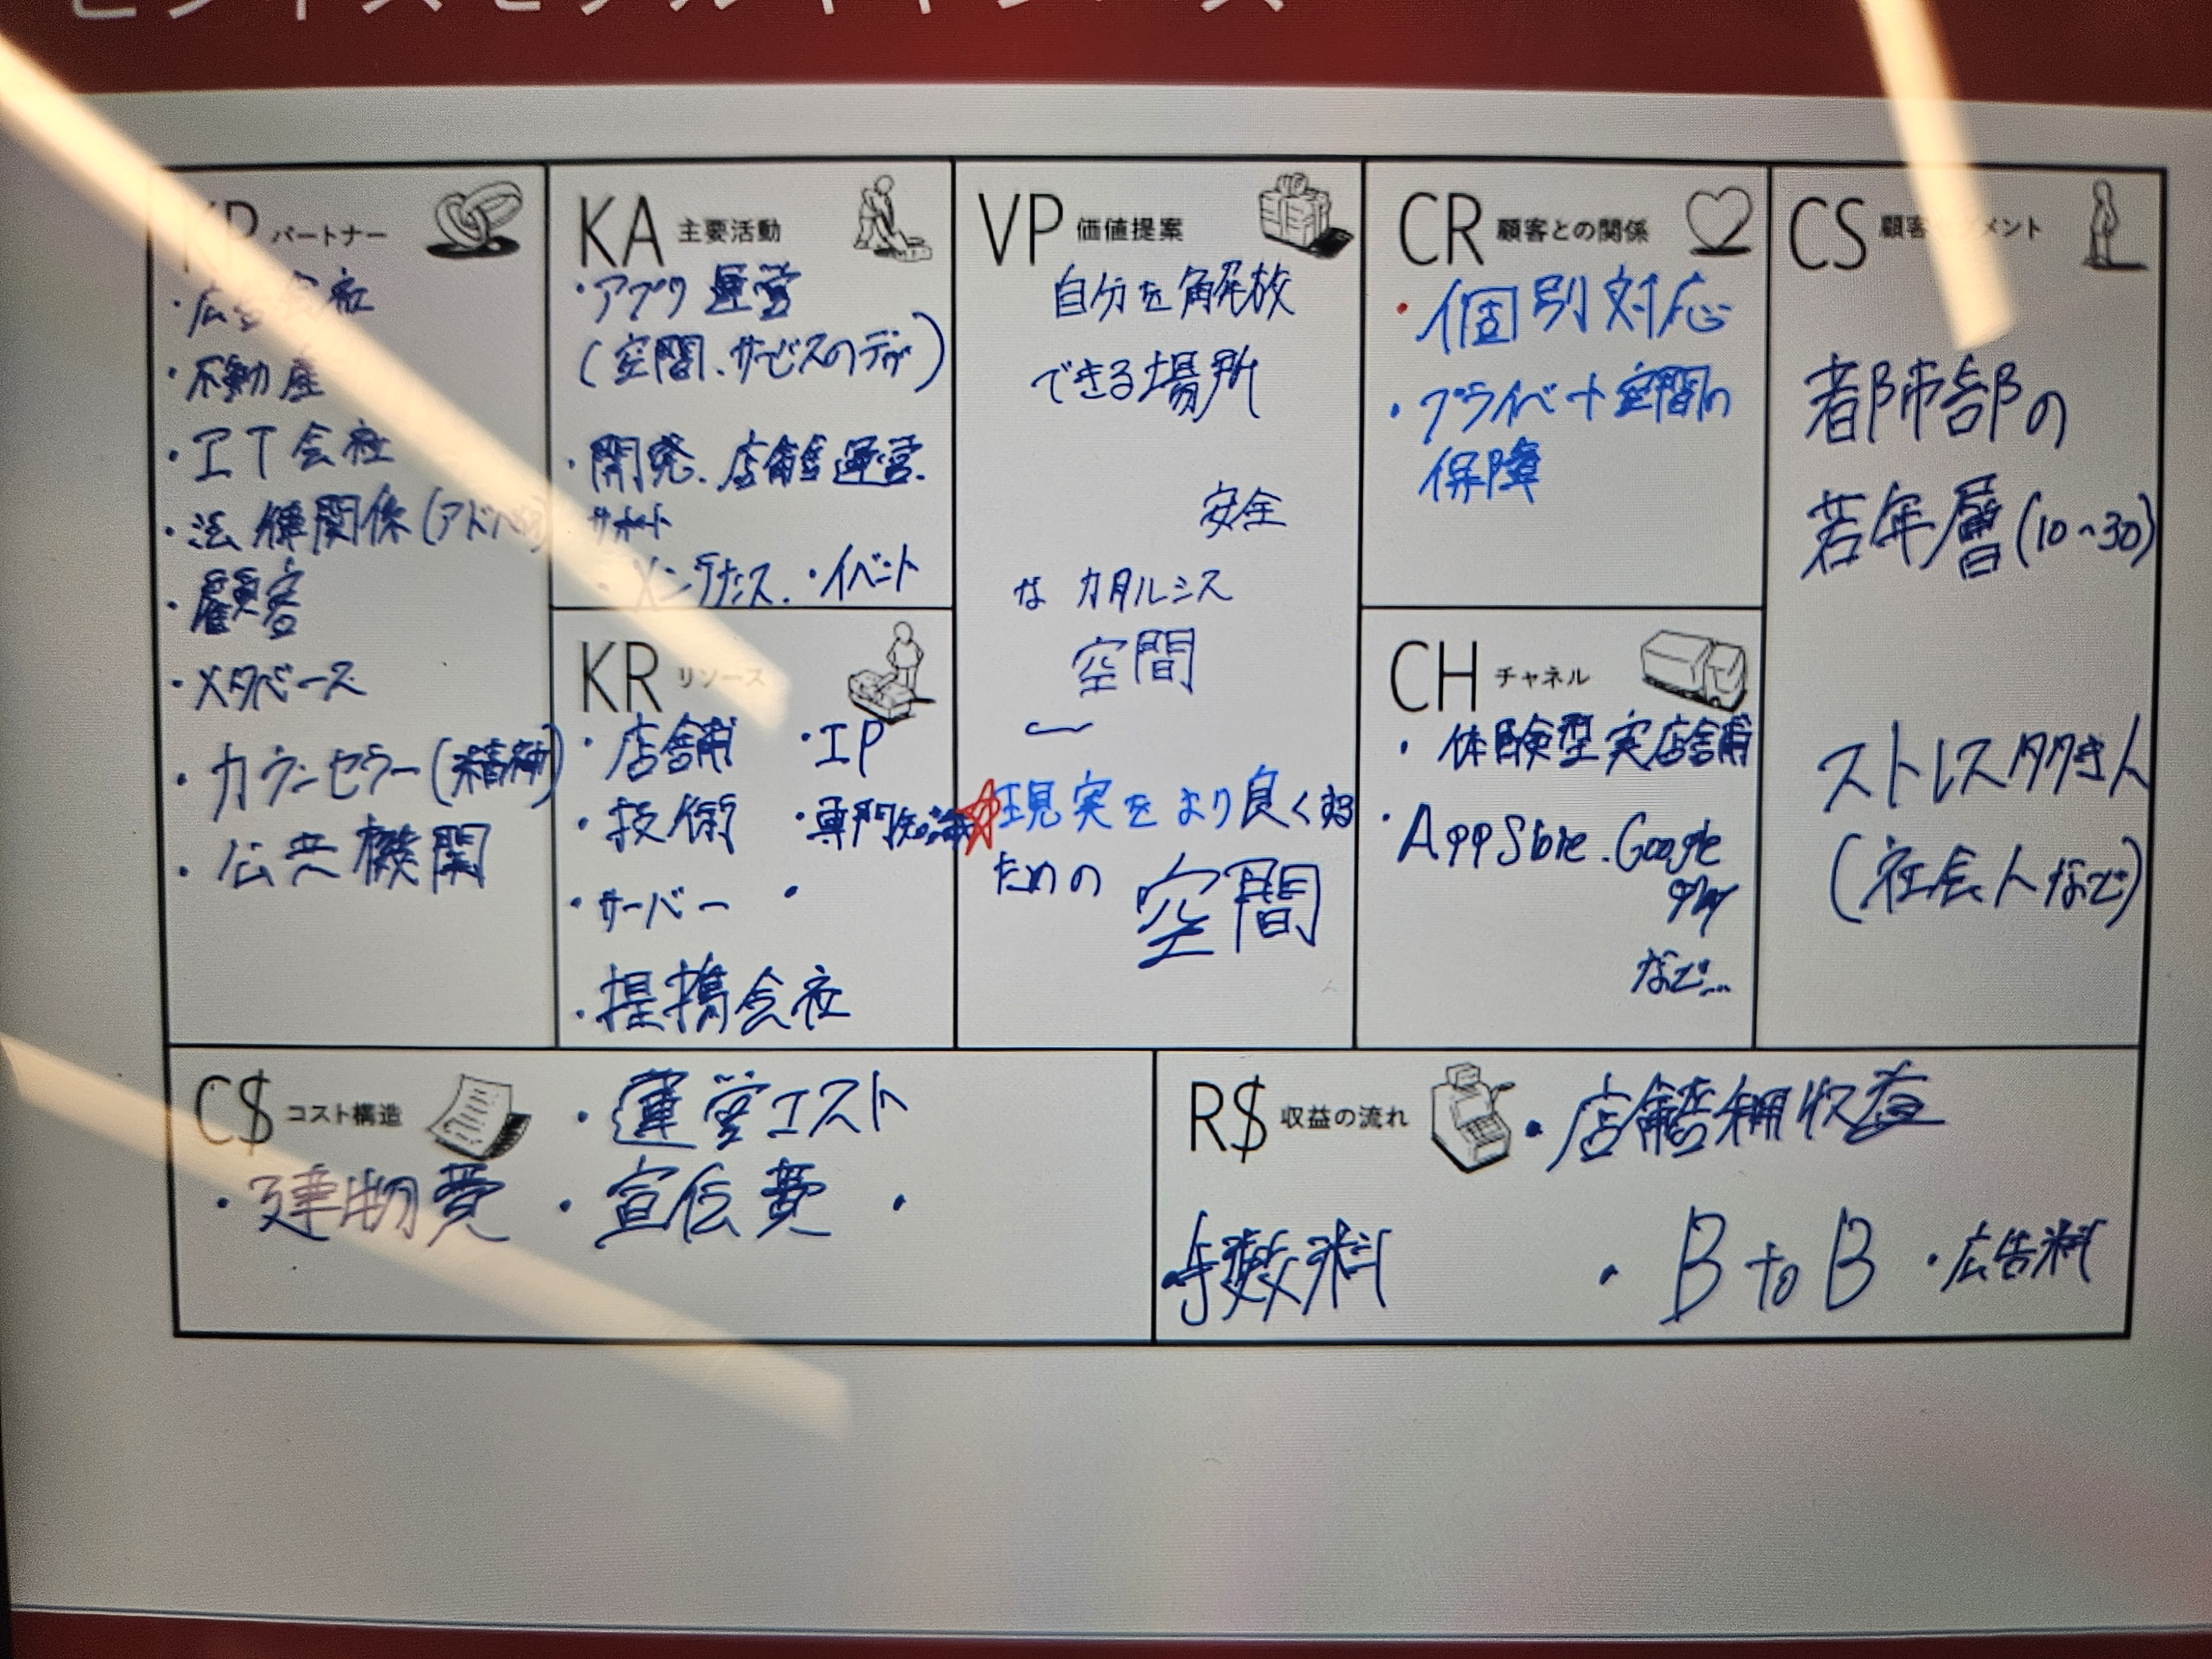 ビジネスモデルキャンバス
KP パートナー
・広告会社
・不動産
・IT会社
・法律関係(アド
・顧客
・メタバース
・カウンセラー(精神)
・公共機関
KA 主要活動
・アプリ運営
(空間、サービスの
・開発、店舗運営、
サポート
・メンテナンス、・イベント
KR リソース
・店舗 ・IP
・技術 ・専門知識
・サーバー ・
・提携会社
VP 価値提案
自分を解放
できる場所
安全
な カタルシス
空間
現実をより良くする
ための 空間
CR 顧客との関係
・個別対応
・プライベート空間の
保障
CH チャネル
・体験型実店舗
・AppStore . Google
Play
など...
CS 顧客セグメント
都市部の
若年層(10~30)
ストレスタクさん
(社会人など)
C$ コスト構造
・運営コスト
・建物費 ・宣伝費 ・
R$ 収益の流れ
・店舗利用収益
・手数料 ・BtoB ・広告料